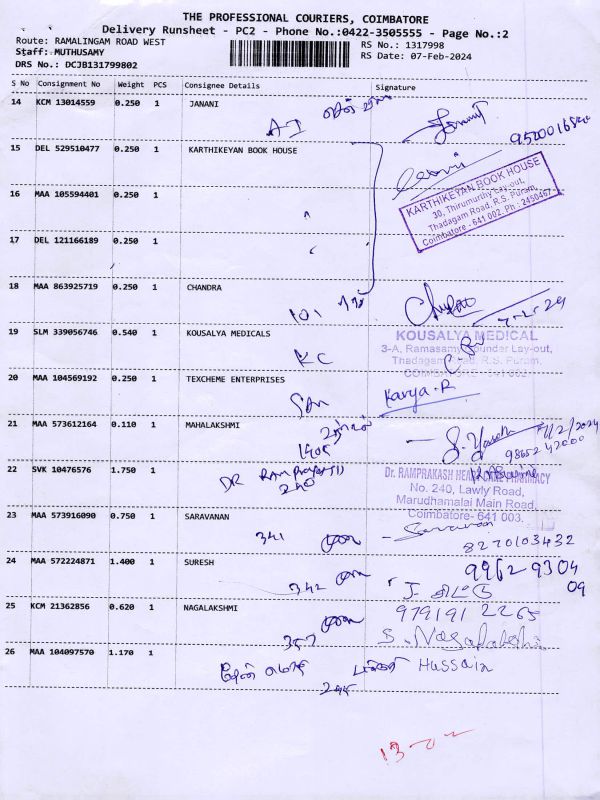 THE PROFESSIONAL COURIERS, COIMBATORE
Delivery Runsheet - PC2 - Phone No.:0422-3505555 - Page No.:2
Route: RAMALINGAM ROAD WEST
Staff: MUTHUSAMY
DRS No.: DCJB131799802
RS No.: 1317998
RS Date: 07-Feb-2024
S No Consignment No Weight PCS Consignee Details Signature
14 KCM 13014559 0.250 1 JANANI
15 DEL 529510477 0.250 1 KARTHIKEYAN BOOK HOUSE
KARTHIKEYAN BOOK HOUSE
30, Thirumurthy Lay-out,
Thadagam Road, R.S. Puram,
Coimbatore - 641 002. Ph : 2450467
16 MAA 105594401 0.250 1
17 DEL 121166189 0.250 1
18 MAA 863925719 0.250 1 CHANDRA
101
7-2-24
19 SLM 339056746 0.540 1 KOUSALYA MEDICALS
KC
KOUSALYA MEDICAL
3-A, Ramasamy Sunder Lay-out,
Thadagam Road, R.S. Puram,
20 MAA 104569192 0.250 1 TEXCHEME ENTERPRISES
Karya.R
21 MAA 573612164 0.110 1 MAHALAKSHMI
7/2/2024
98652 42000
22 SVK 10476576 1.750 1
DR
240
Dr. RAMPRAKASH HEART CARE PHARMACY
No. 240, Lawly Road,
Marudhamalai Main Road,
Coimbatore- 641 003.
23 MAA 573916090 0.750 1 SARAVANAN
341
Saravanan
8270103432
24 MAA 572224871 1.400 1 SURESH
342
99629304
09
25 KCM 21362856 0.620 1 NAGALAKSHMI
357
979191 2265
S. Nagalakshmi
26 MAA 104097570 1.170 1
Hussain